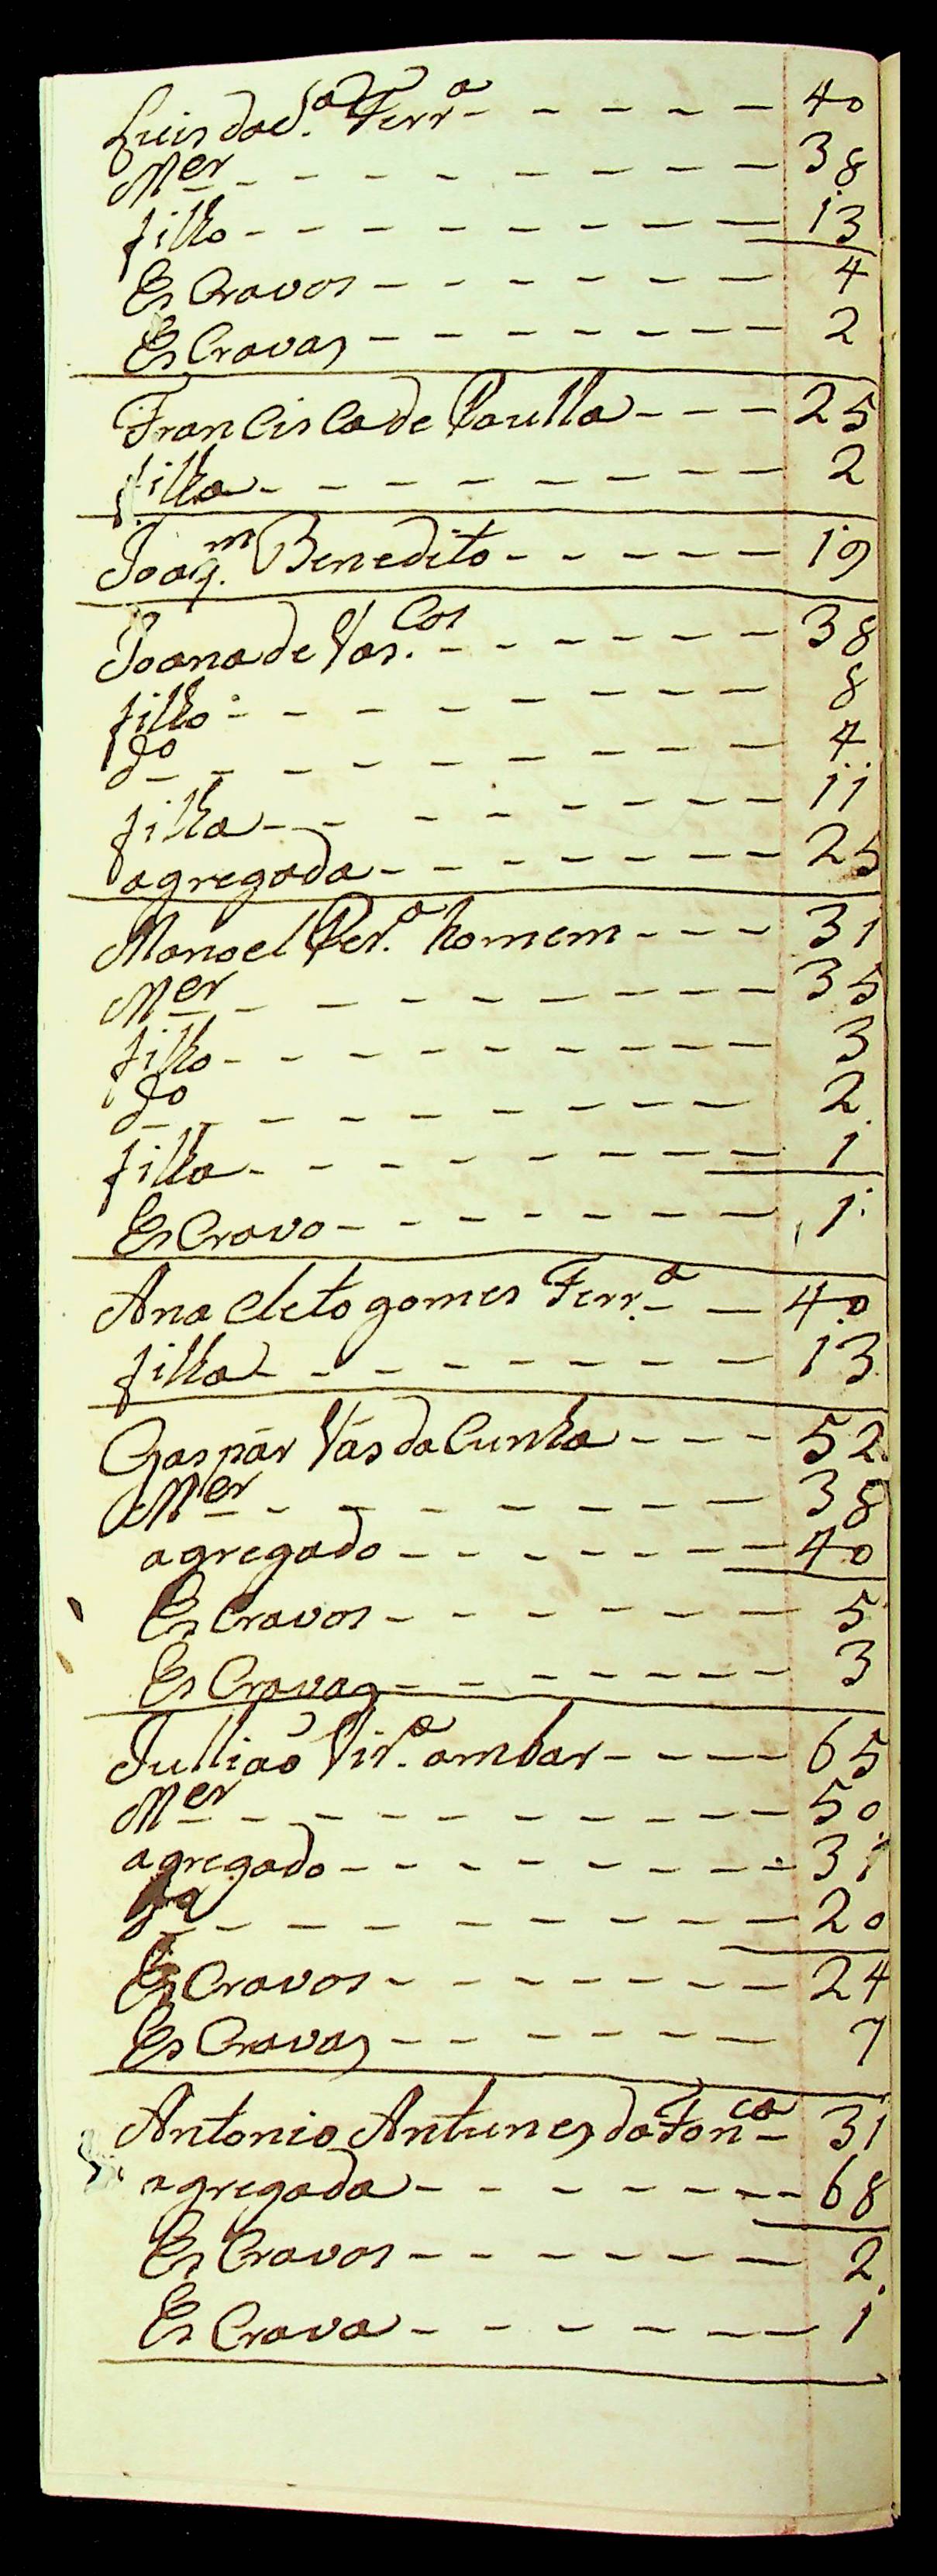 Luis da S.ª Ferr.ª - - - - - 40
M.er - - - - - - - - - 38
filho - - - - - - - - - 13
EsCravos - - - - - - - 4
EsCravas - - - - - - - - 2
FranCisCa de Paulla - - - 25
filha - - - - - - - - - 2
Joaq.m Benedito - - - - - 19
Joana de Vas.Cos - - - - - - 38
filho - - - - - - - - - 8
do - - - - - - - - - 4
filha - - - - - - - - 11
agregada - - - - - - - - 25
Manoel Per.ª homem - - - 31
M.er - - - - - - - - - 35
filho - - - - - - - - - 3
do - - - - - - - - - 2
filha - - - - - - - - - 1
EsCravo - - - - - - - - 1
Ana Cleto gomes Ferr.ª - - 40
filha - - - - - - - - - 13
Gaspar Vás da Cunha - - - 52
M.er - - - - - - - - - 38
agregado - - - - - - - - 40
EsCravos - - - - - - - 5
EsCravas - - - - - - - 3
Jullião Vir.ª ambar - - - - 65
M.er - - - - - - - - - - 50
agregado - - - - - - - - - 31
- - - - - - - - - 20
EsCravos - - - - - - - - 24
EsCravas - - - - - - - 7
Antonio Antunes da Fonca - 31
agregada - - - - - - - - 68
EsCravos - - - - - - - 2
EsCrava - - - - - - - 1